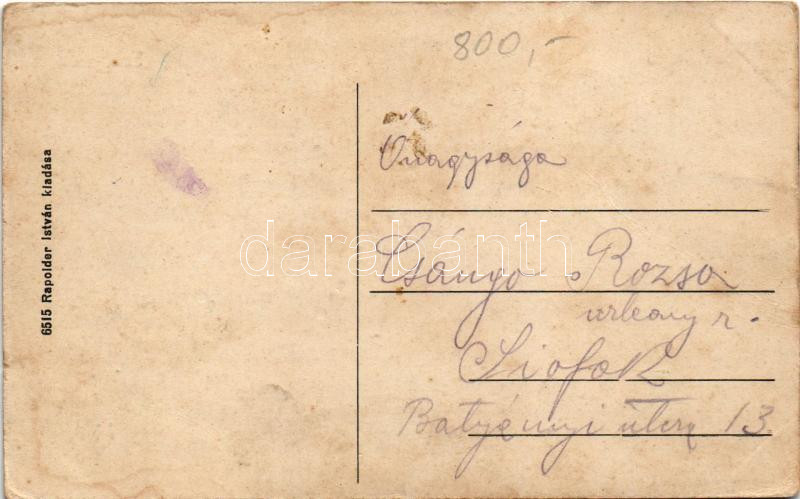 800,-
6515 Rapolder István kiadása
Őnagysága
Csányo Rozsa
urleany r.
Siofok
Batyányi utcza 13.
darabanth